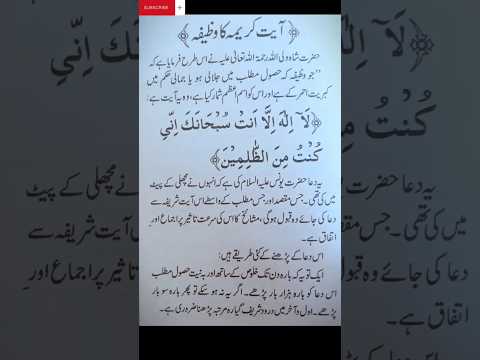 SUBSCRIBE
آیت کریمہ کا وظیفہ
حضرت شاہ ولی اللہ رحمۃ اللہ تعالیٰ علیہ نے اس طرح فرمایا ہے کہ
"جو وظیفہ کہ حصول مطلب میں جلالی ہو یا جمالی حکم میں
کبریت احمر کے ہے اور اس کو اسم اعظم شمار کیا ہے، وہ یہ آیت ہے:
﴿لَآ اِلٰهَ اِلَّآ اَنْتَ سُبْحَانَكَ اِنِّيْ
كُنْتُ مِنَ الظّٰلِمِيْنَ﴾
یہ دعا حضرت یونس علیہ السلام کی ہے کہ انہوں نے مچھلی کے پیٹ
میں کی تھی۔ جس مقصد اور جس مطلب کے واسطے اس آیت شریفہ سے
دعا کی جائے وہ قبول ہوگی، مشائخ کا اس کی سرعت تاثیر پر اجماع اور
اتفاق ہے۔
اس دعا کے پڑھنے کے کئی طریقے ہیں:
ایک تو یہ کہ بارہ دن تک خلوص کے ساتھ اور بہ نیت حصول مطلب
اس دعا کو بارہ ہزار بار پڑھے۔ اگر یہ نہ ہو سکے تو پھر بارہ سو بار
پڑھے۔ اول و آخر میں درود شریف گیارہ مرتبہ پڑھنا ضروری ہے۔
میں کی تھی۔
دعا کی جائے وہ
اتفاق ہے۔
یت شریفہ سے
پر اجماع اور